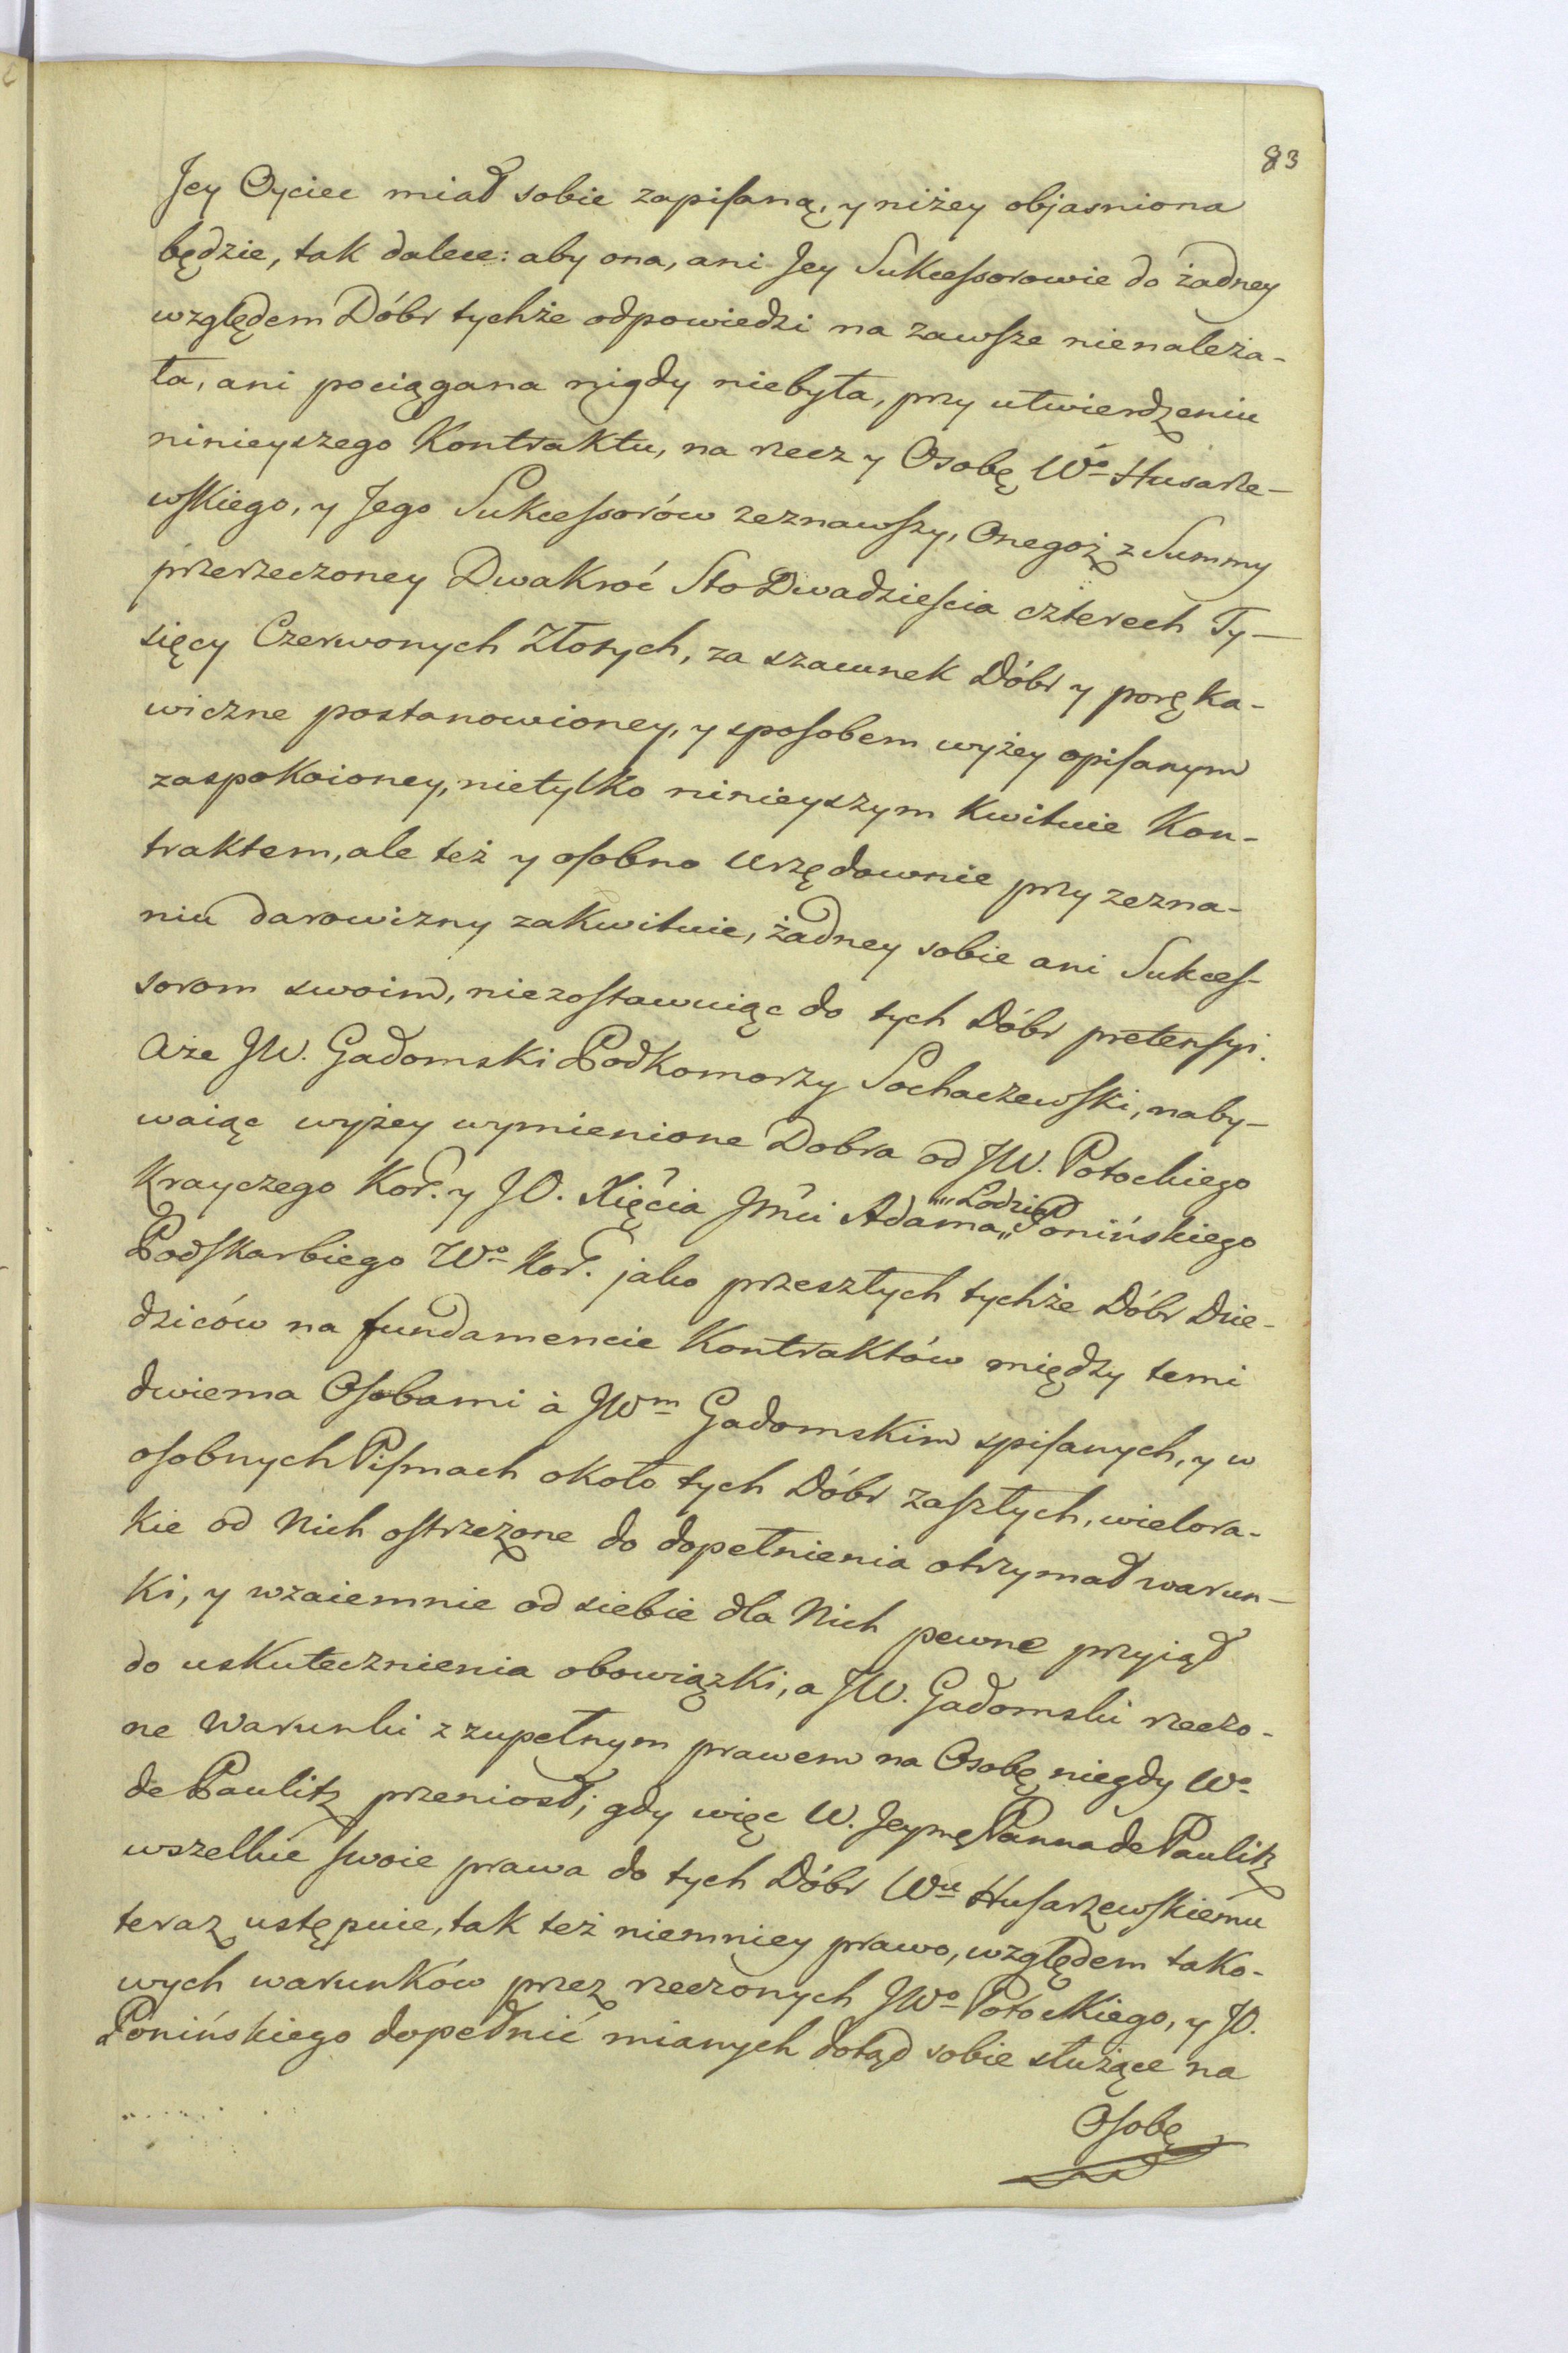 83
Jey Oyciec miał sobie zapisaną, y niżey objasniona
będzie, tak dalece: aby ona, ani Jey Sukcessorowie do żadney
względem Dóbr tychże odpowiedzi na zawsze nienależa-
ła, ani pociągana nigdy niebyła, przy utwierdzeniu
ninieyszego Kontraktu, na rzecz y Osobę Wo Husarze-
wskiego, y Jego Sukcessorów zeznawszy, Onegoż z Summy
przerzeczoney Dwakroć Sto Dwadzieścia czterech Ty-
sięcy Czerwonych Złotych, za szacunek Dóbr y poręka-
wiczne postanowioney, y sposobem wyżey opisanym
zaspokoioney, nietylko ninieyszym kwituie Kon-
traktem, ale też y osobno Urzędownie przy zezna-
niu darowizny zakwituie, żadney sobie ani Sukces-
sorom swoim, niezostawuiąc do tych Dóbr pretensyi.
Aże JW. Gadomski Podkomorzy Sochaczewski, naby-
waiąc wyżey wymienione Dobra od JW. Potockiego
Krayczego Kor. y JO. Xięcia Jmći Adama „Łodzi„ Ponińskiego
Podskarbiego Wo Kor. jako przeszłych tychże Dóbr Dzie-
dziców na fundamencie Kontraktów między temi
dwiema Osobami à JWm Gadomskim spisanych, y w
osobnych Pismach około tych Dóbr zaszłych, wielora-
kie od Nich ostrzeżone do dopełnienia otrzymał warun-
ki, y wzaiemnie od siebie dla Nich pewne przyiął
do uskutecznienia obowiązki, a JW. Gadomski rzeczo-
ne Warunki z zupełnym prawem na Osobę niegdy Wo
de Paulitz przeniosł; gdy więc W. Jeymę Panna de Paulitz
wszelkie swoie prawa do tych Dóbr Wu Husarzewskiemu
teraz ustępuie, tak też niemniey prawo, względem tako-
wych warunków przez rzeczonych JWo Potockiego, y JO.
Ponińskiego dopełnić mianych dotąd sobie służące na
Osobę